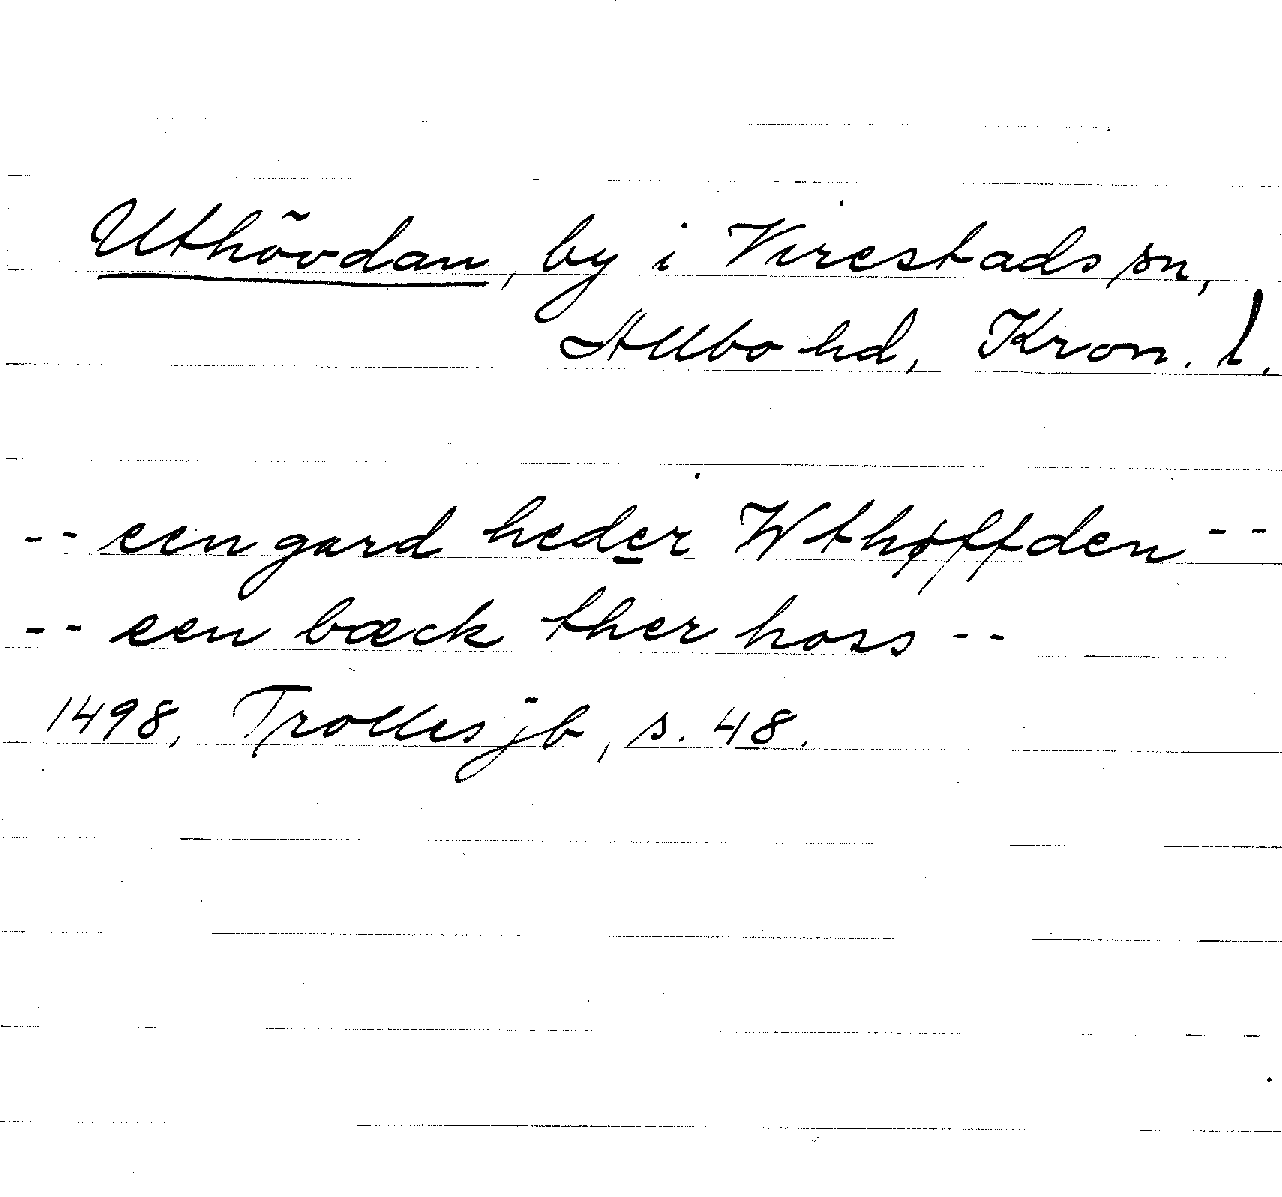 Uthövdan, by i Virestads sn,
Allbo hd, Kron. l.
-- een gard heder Wthøffden --
-- een bæck ther hoss --
1498, Trolles jb, s. 48.